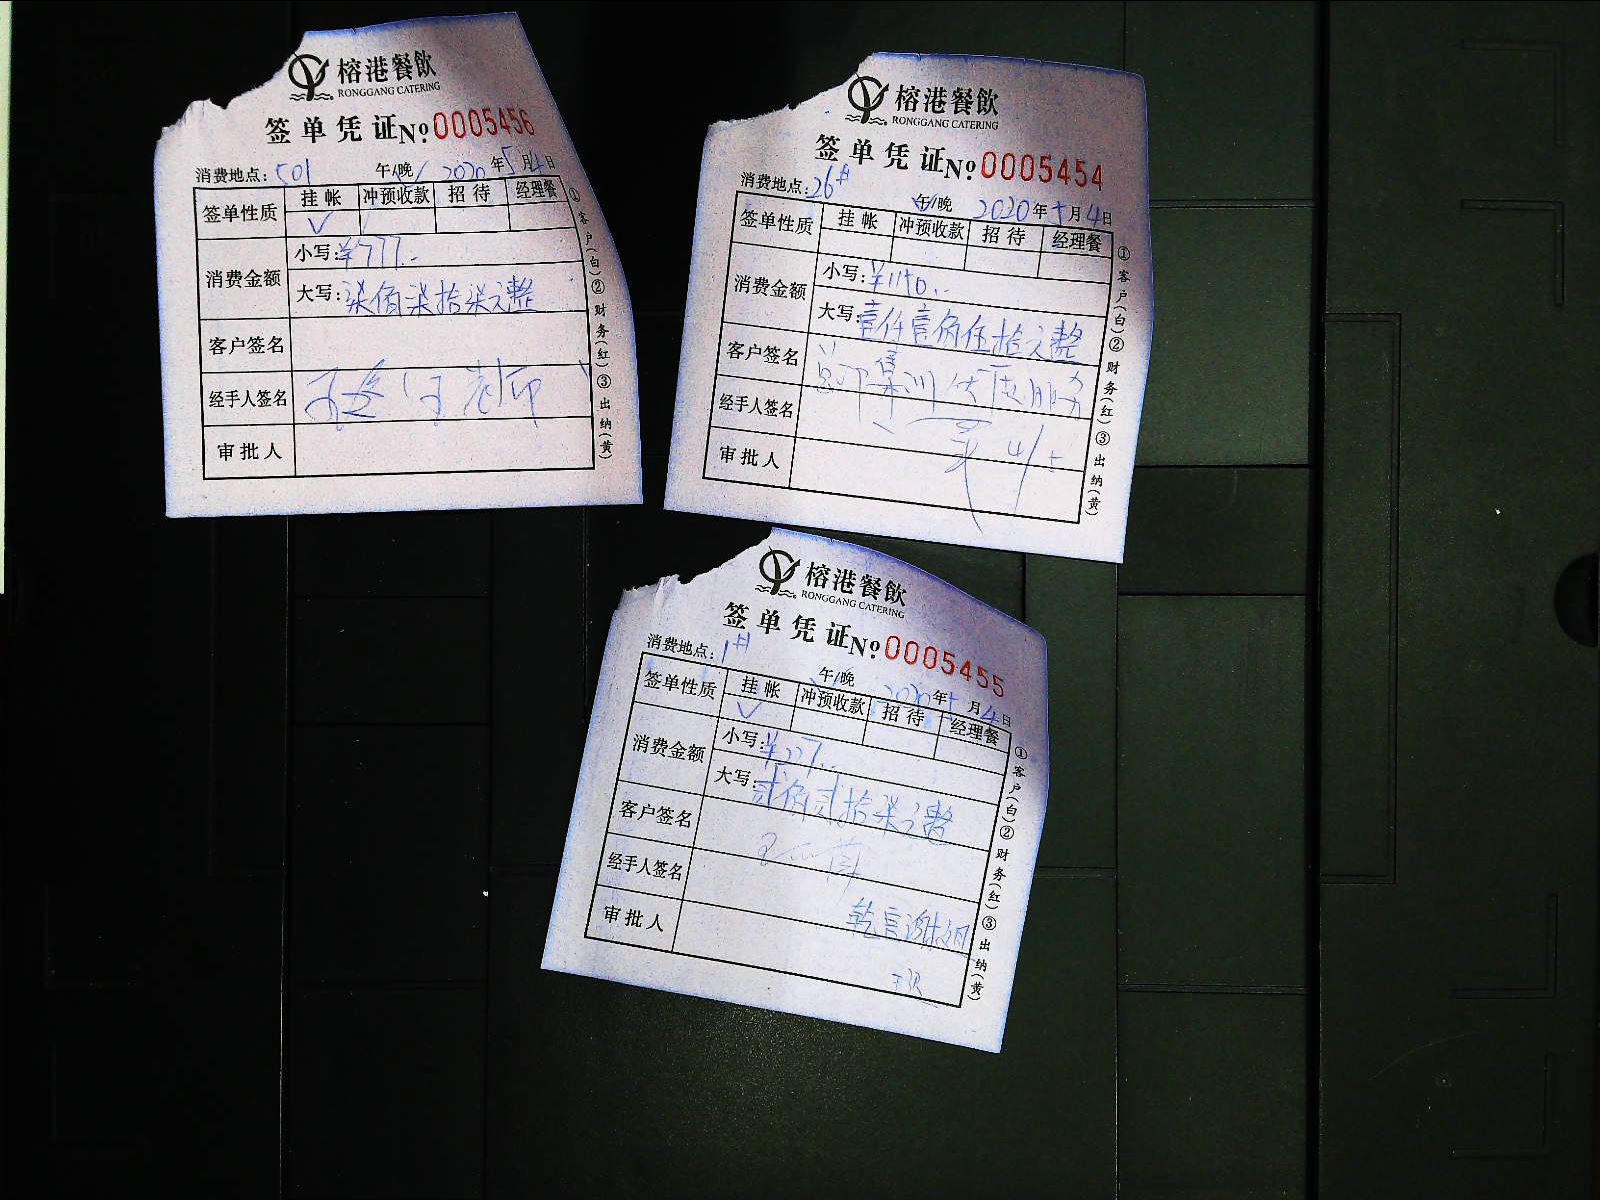 榕港餐飲
RONGGANG CATERING
签单凭证 No 0005456
消费地点: 501 午/晚 2020年5月4日
签单性质 挂帐 冲预收款 招待 经理餐
✓
消费金额 小写: ¥777.-
大写: 柒佰柒拾柒元整
客户签名
经手人签名
审批人
①客户(白)②财务(红)③出纳(黄)
榕港餐飲
RONGGANG CATERING
签单凭证 No 0005454
消费地点: 26# 午/晚 2020年5月4日
签单性质 挂帐 冲预收款 招待 经理餐
消费金额 小写: ¥1150.-
大写: 壹仟壹佰伍拾元整
客户签名
经手人签名
4/5
审批人
①客户(白)②财务(红)③出纳(黄)
榕港餐飲
RONGGANG CATERING
签单凭证 No 0005455
消费地点: 1# 午/晚 2020年5月4日
签单性质 挂帐 冲预收款 招待 经理餐
✓
消费金额 小写: ¥227.-
大写: 贰佰贰拾柒元整
客户签名
经手人签名
审批人
①客户(白)②财务(红)③出纳(黄)